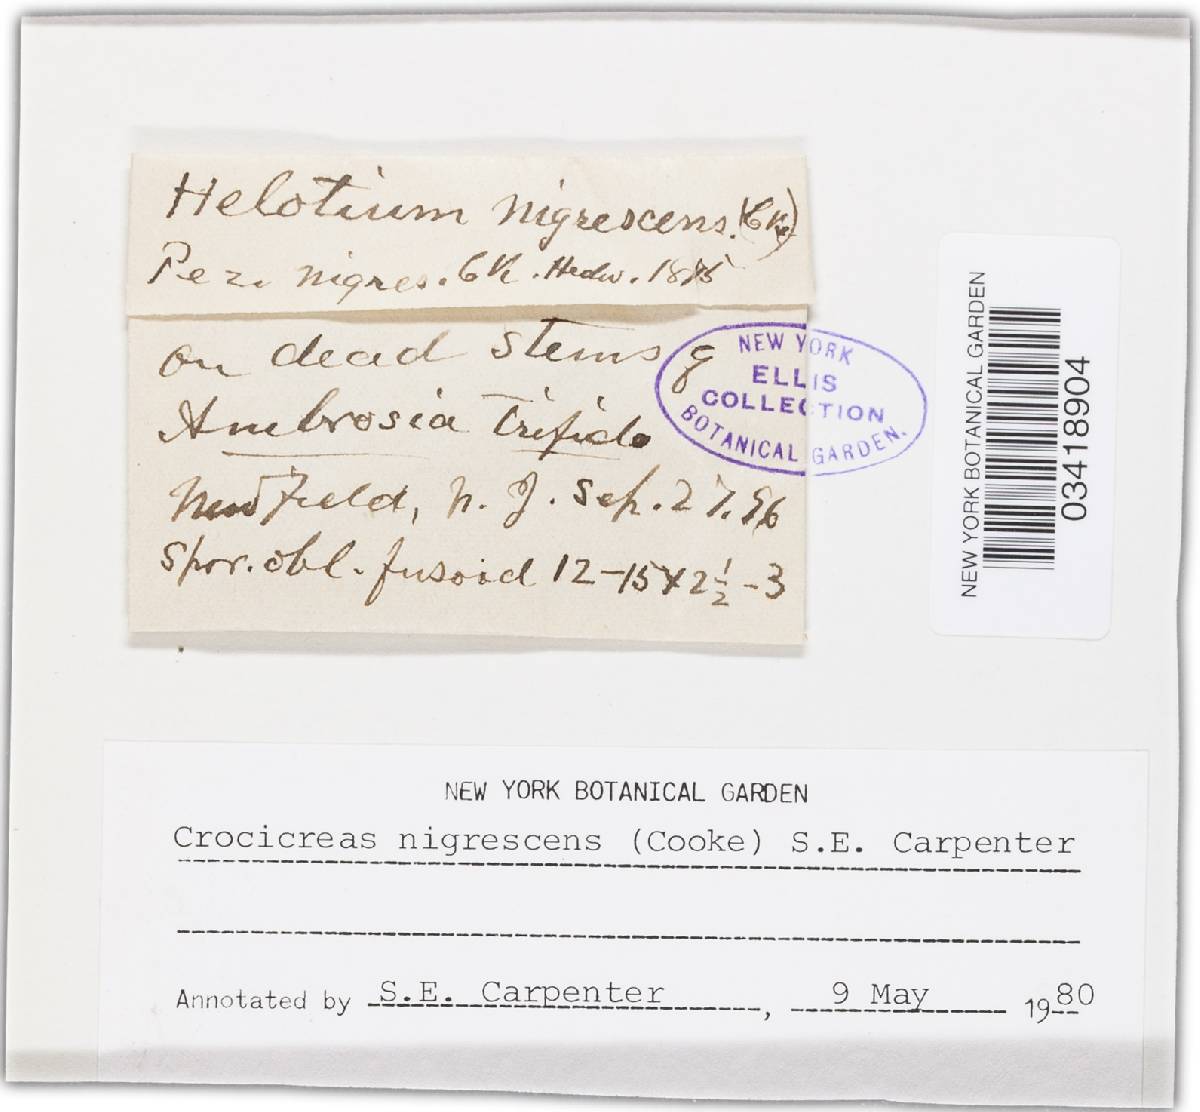 Helotium nigrescens. (Cke)
Pezi nigres. CK. Hedw. 1875
on dead stems of
Ambrosia trifida
Newfield, N. J. Sep. 27. 96
Spor. obl. fusoid 12-15 x 2½-3
NEW YORK
ELLIS
COLLECTION
BOTANICAL GARDEN.
NEW YORK BOTANICAL GARDEN
03418904
NEW YORK BOTANICAL GARDEN
Crocicreas nigrescens (Cooke) S.E. Carpenter
Annotated by S.E. Carpenter, 9 May 1980